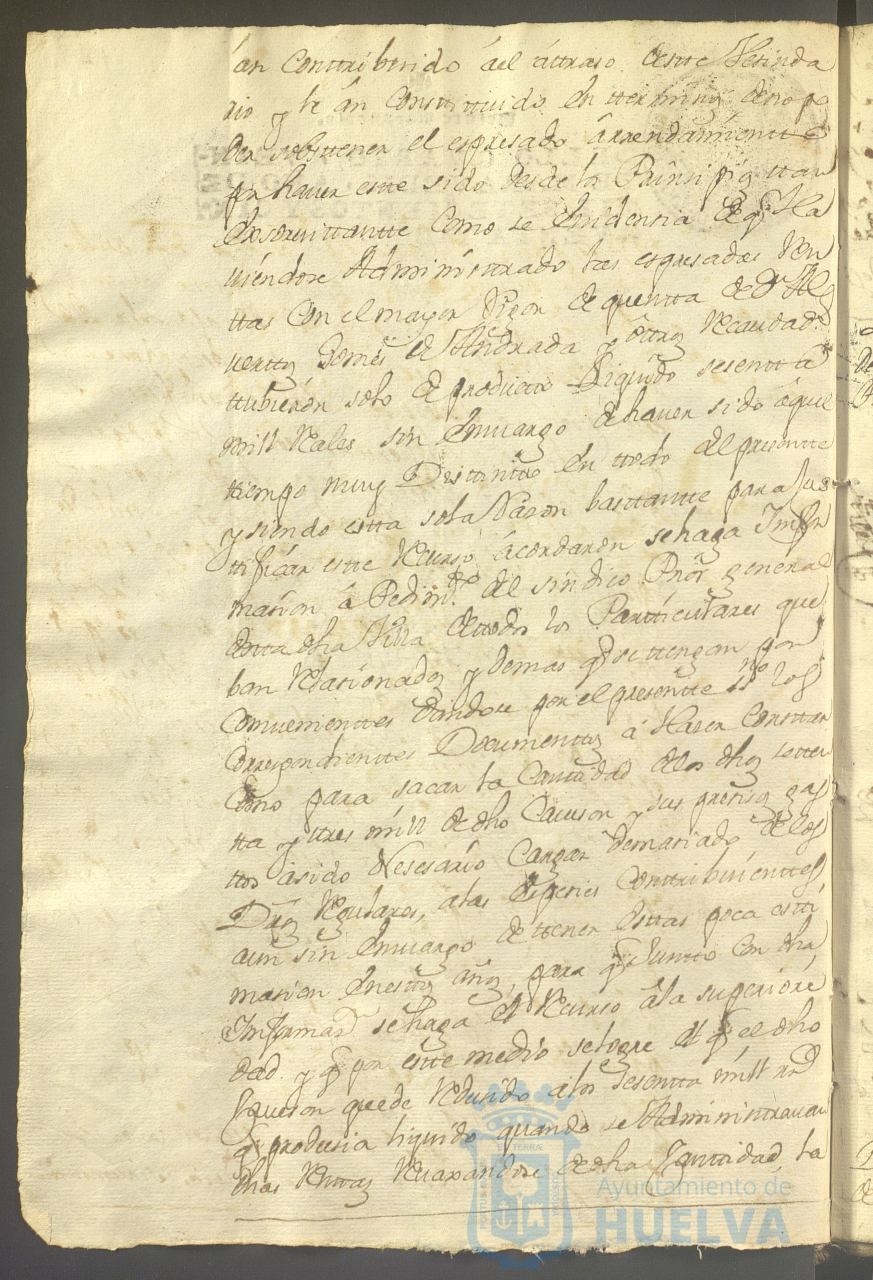 án Conttribuido áel áttraso deste Vesinda
rio y le án Constittuido en ttermins. deno po
der sobsttener el espresado árrendamientto
pr. haver este sido desde los Prinsipios ttan
exsorvittantte Como se evidensia deqe.
viéndose Administrado las espresadas Ren
ttas Con el mayor Rigor de quentta de Dn.
vertto Gomes de Andrada y ôttros Recaudads.
ttubierón solo de producto Liquido sesentta
mill Reales sin envargo de haver sido áquel
tiempo muy Disttintto en ttodo del presentte
y siendo estta sola Razon basttantte para Jus
ttificar este Recurso, ácordarón se haga Infor
masion á Pedimto. del síndico Pror. general
destta dha Villa dettodos los Partticulares que
ban Relasionados y demas qe. se ttengan por
Comvenienttes dandose por el presentte sno. los
Correspondienttes Documenttos á Haser Consttar
Cómo para sacar la Canttidad delos dhos setten
tta y ttres mill de dho Caveson y sus presisos gas
ttos ásido Nesesario Cargar demasiado delos
Dros Regulares, alas espesies Conttribuienttes
aun sin envargo de ttener esttas poca estti
masion en esttos años, para qe. Juntto con dha
Informasn. se haga el Recurso âla superiori
dad y qe. por estte medio se logre el qe. el dho
Caveson quede Redusido alos sesentta mill rs.
qe. produsia liquido quando se Administravan
dhas Renttas Revaxandose de dha Canttidad, la
Ayuntamiento de
HUELVA